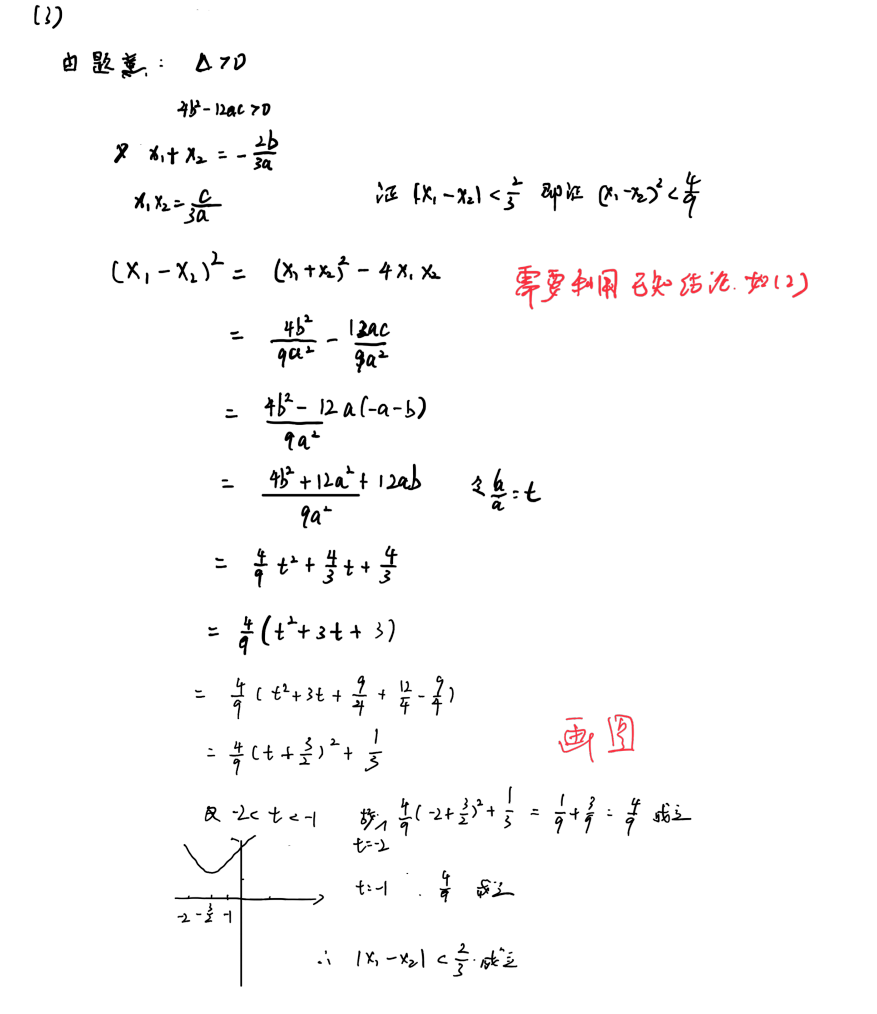 (3)
由题意: Δ>0
4b²-12ac>0
又 x₁+x₂ = -2b/3a
x₁x₂ = c/3a
证 |x₁-x₂|<2/3 即证 (x₁-x₂)²<4/9
(x₁-x₂)² = (x₁+x₂)²-4x₁x₂
需要利用已知结论.如(2)
= 4b²/9a² - 12ac/9a²
= (4b²-12a(-a-b))/9a²
= (4b²+12a²+12ab)/9a² 令 b/a=t
= 4/9 t²+4/3 t+4/3
= 4/9(t²+3t+3)
= 4/9(t²+3t+9/4+12/4-9/4)
= 4/9(t+3/2)²+1/3
画图
又 -2<t<-1 故 4/9(-2+3/2)²+1/3 = 1/9+3/9 = 4/9 成立
t=-2
t=-1 . 4/9 成立
-2 -3/2 -1
∴ |x₁-x₂|<2/3.成立